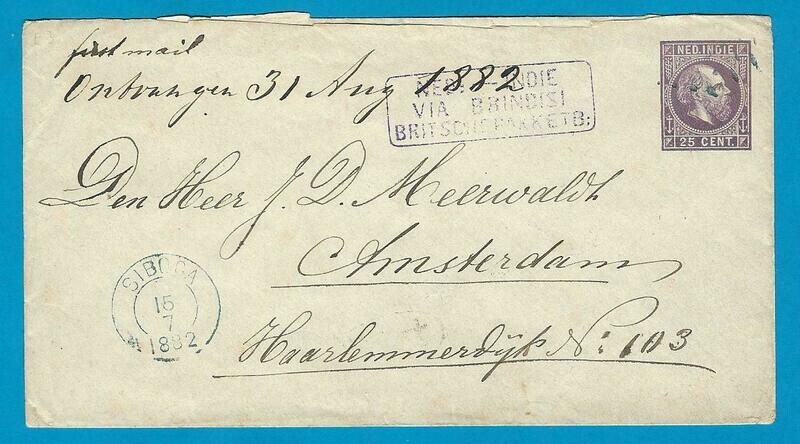 first mail
Ontvangen 31 Aug 1882
NED. INDIE
VIA BRINDISI
BRITSCHE PAKKETB:
NED. INDIE
25 CENT.
Den Heer J. D. Meerwaldt
Amsterdam
Haarlemmerdijk No: 103
SIBOGA
15
7
1882